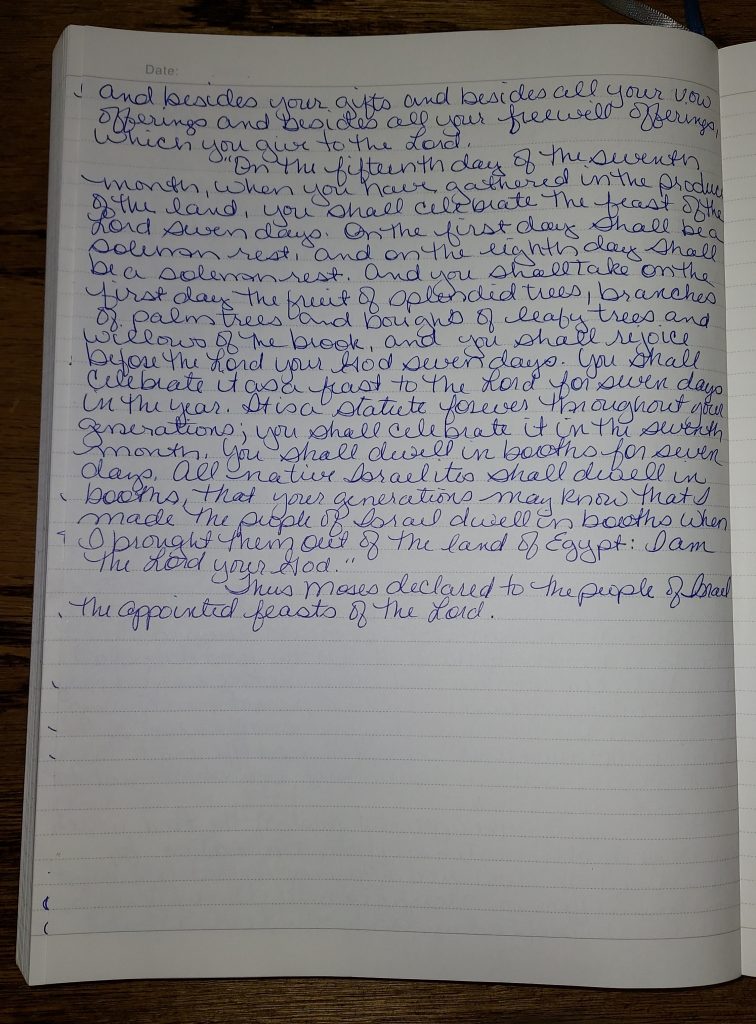 Date:
and besides your gifts and besides all your vow
offerings and besides all your freewill offerings,
which you give to the Lord.
"On the fifteenth day of the seventh
month, when you have gathered in the produce
of the land, you shall celebrate the feast of the
Lord seven days. On the first day shall be a
solemn rest, and on the eighth day shall
be a solemn rest. And you shall take on the
first day the fruit of splendid trees, branches
of palm trees and boughs of leafy trees and
willows of the brook, and you shall rejoice
before the Lord your God seven days. You shall
celebrate it as a feast to the Lord for seven days
in the year. It is a statute forever throughout your
generations; you shall celebrate it in the seventh
month. You shall dwell in booths for seven
days. All native Israelites shall dwell in
booths, that your generations may know that I
made the people of Israel dwell in booths when
I brought them out of the land of Egypt: I am
the Lord your God."
Thus Moses declared to the people of Israel
the appointed feasts of the Lord.